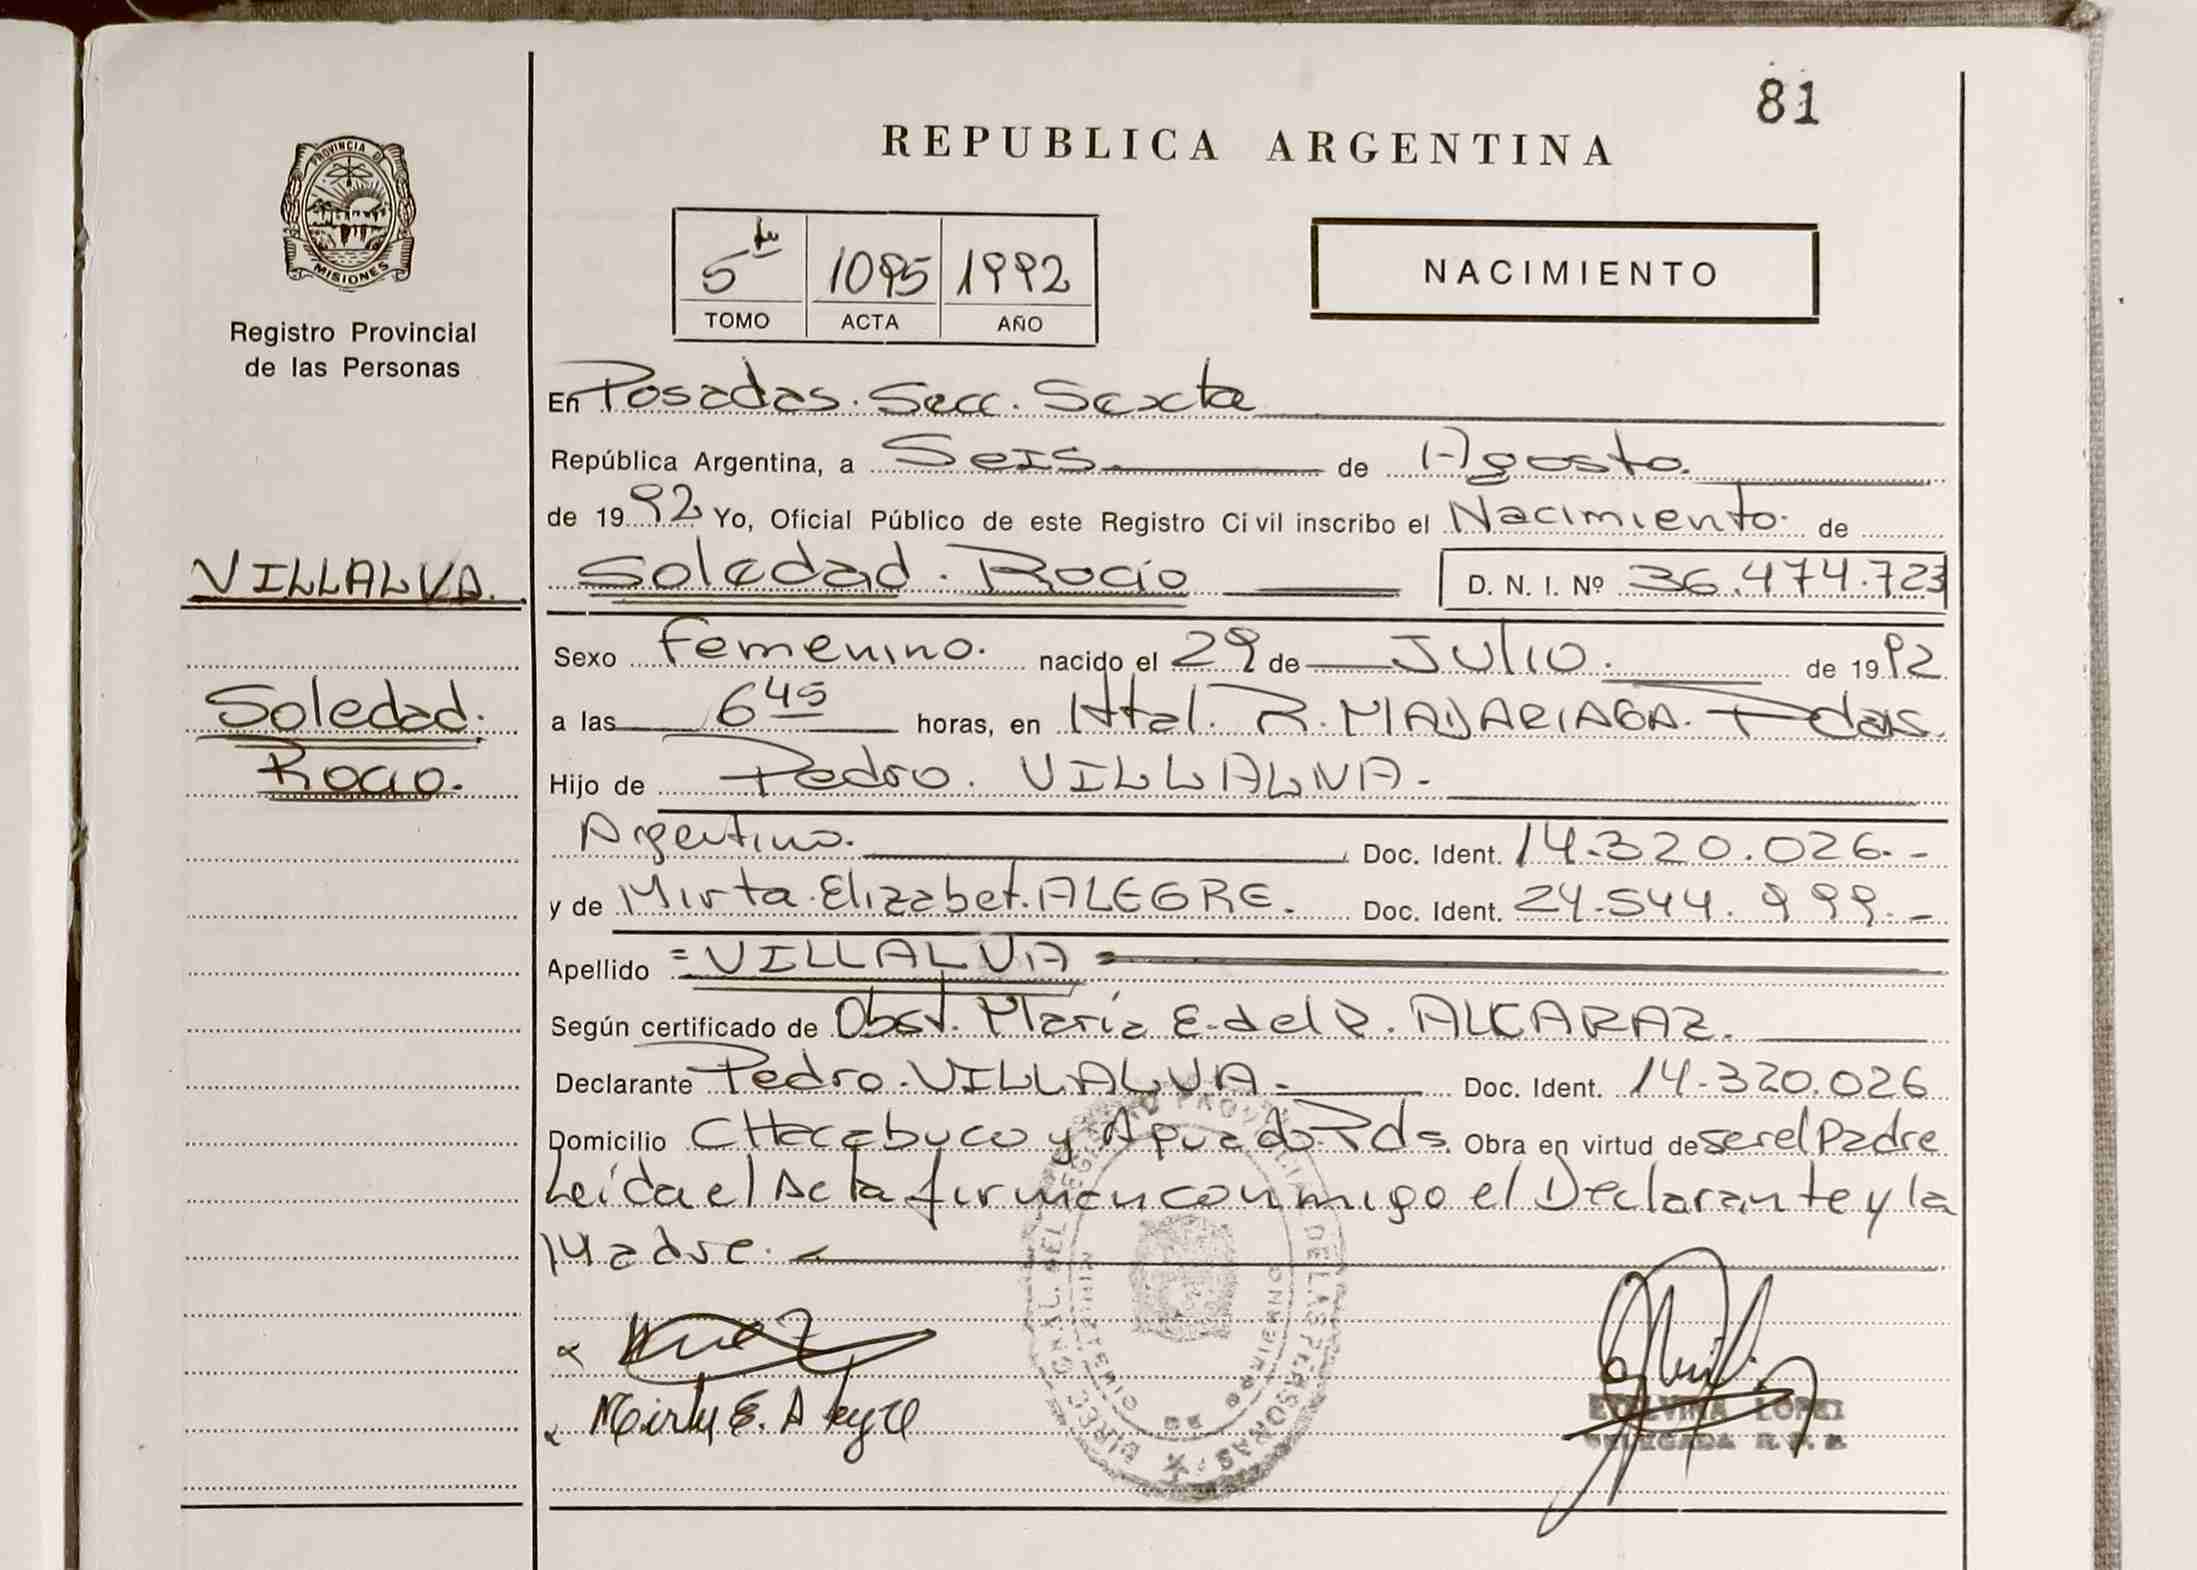 81
REPUBLICA ARGENTINA
PROVINCIA DE
MISIONES
Registro Provincial
de las Personas
5to 1095 1992
TOMO ACTA AÑO
NACIMIENTO
En Posadas. Secc. Sexta
República Argentina, a Seis de Agosto.
de 1992 Yo, Oficial Público de este Registro Civil inscribo el Nacimiento de
VILLALVA.
Soledad. Rocio D. N. I. Nº 36.474.723
Sexo Femenino. nacido el 29 de Julio. de 1992
Soledad.
a las 6 45 horas, en Htal. R. MADARIAGA. Pdas.
Rocio.
Hijo de Pedro. VILLALVA.-
Argentino. Doc. Ident. 14.320.026.-
y de Mirta. Elizabet. ALEGRE. Doc. Ident. 24.544.999.-
Apellido =VILLALVA=
Según certificado de Obst. María E. del R. ALCARAZ.
Declarante Pedro. VILLALVA.- Doc. Ident. 14.320.026
Domicilio CHacabuco y Pds. Obra en virtud de ser el Padre
Leída el Acta firman conmigo el Declarante y la
Madre.
Mirta E. Alegre
LOPEZ
DELEGADA R. P. P.
DIREC. GRAL. DEL REGISTRO PROVINCIAL DE LAS PERSONAS
MINISTERIO DE GOBIERNO